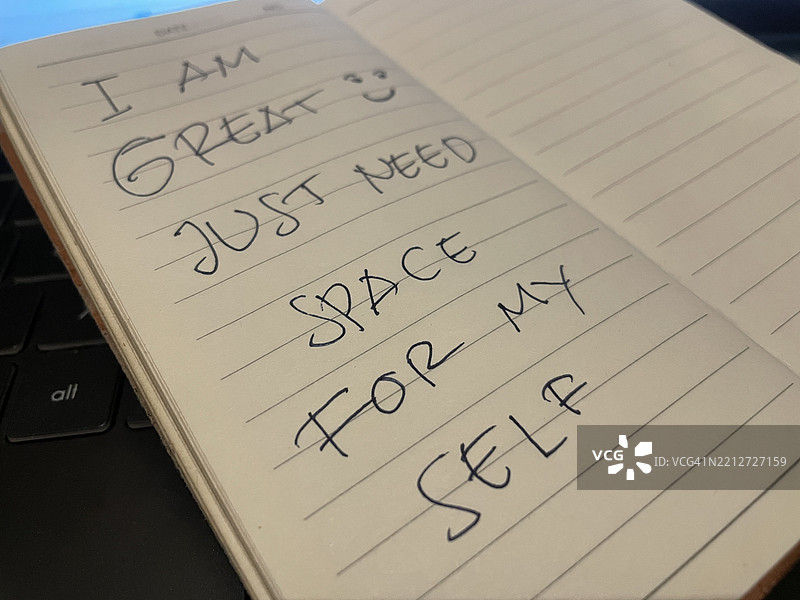 I AM
GREAT
JUST NEED
SPACE
FOR MY
SELF
alt
VCG ID: VCG41N2212727159